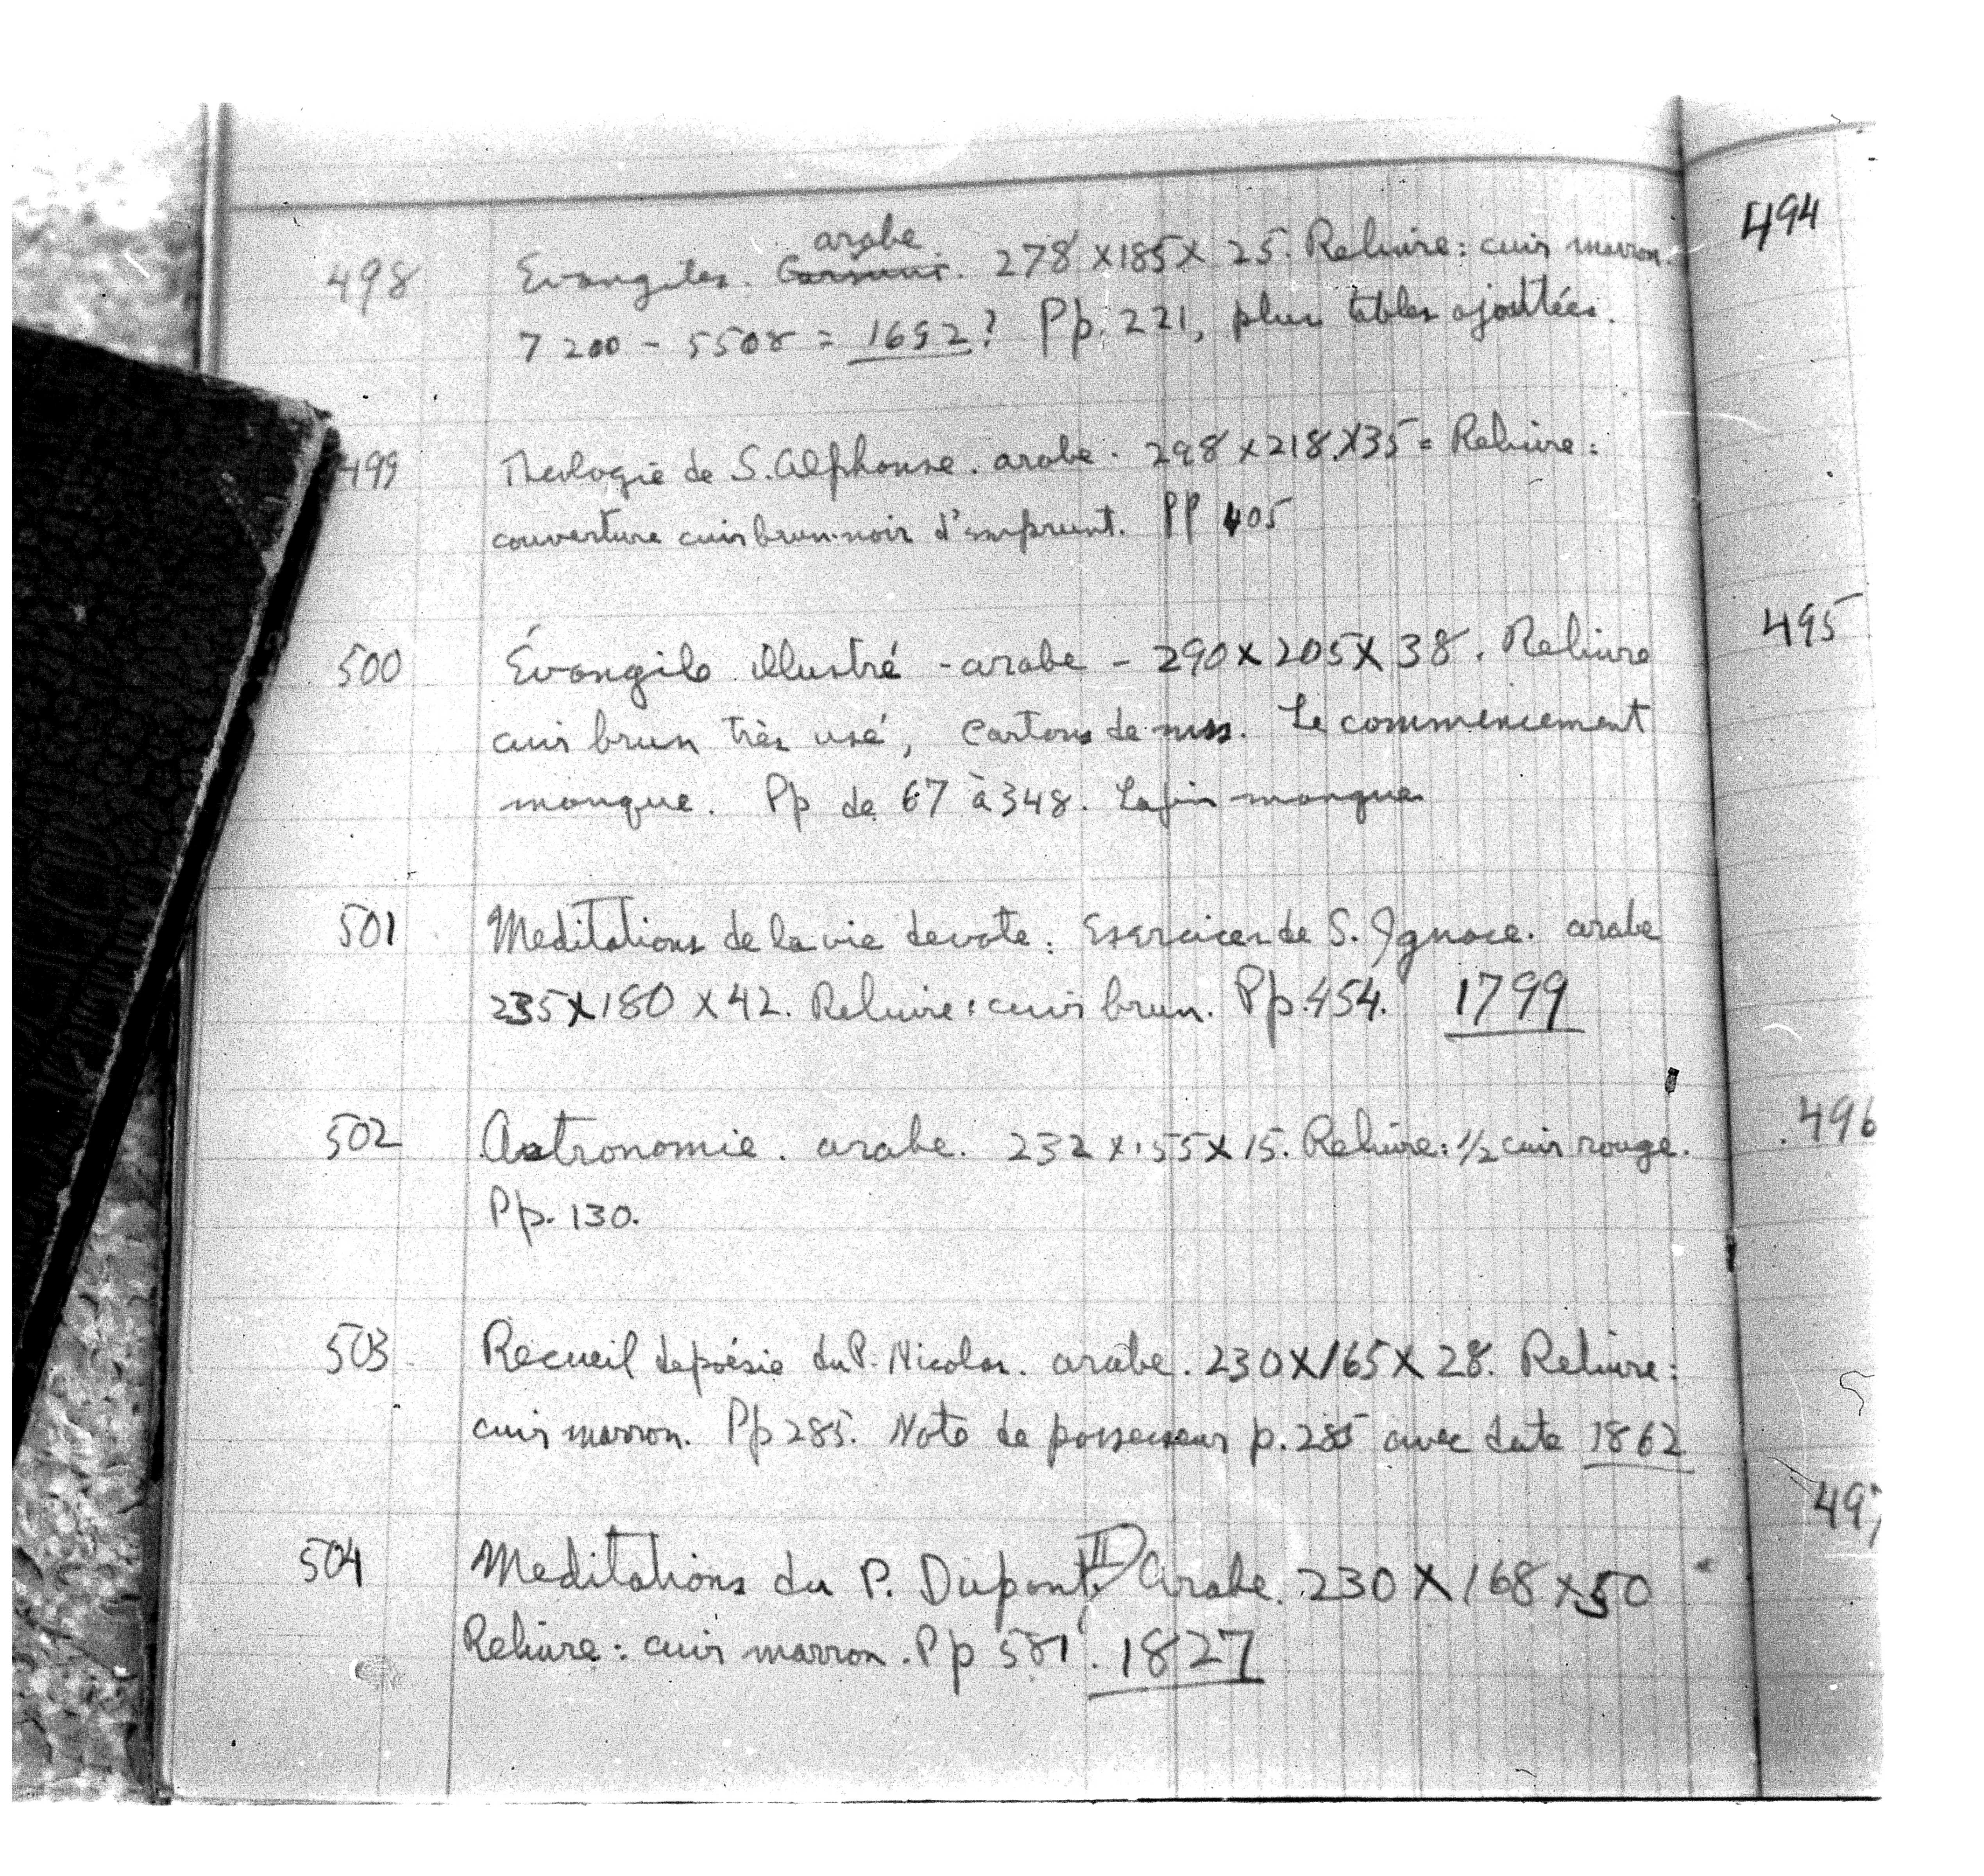 498 Evangiles. Garsuni. arabe 278 x 185 x 25. Reliure: cuir marron.
7200 - 5508 = 1692? Pp. 221, plus tables ajoutées.
499 Theologie de S. Alphonse. arabe. 298 x 218 x 35 = Reliure:
couverture cuir brun-noir d'emprunt. PP 405
500 Évangile illustré - arabe - 290 x 205 x 38. Reliure
cuir brun très usé, Cartons de mss. Le commencement
manque. Pp de 67 à 348. La fin manque
501 Meditations de la vie devote. Exercices de S. Ignace. arabe
235 x 180 x 42. Reliure: cuir brun. Pp. 454. 1799
502 Astronomie. arabe. 232 x 155 x 15. Reliure: 1/2 cuir rouge.
Pp. 130.
503 Recueil de poésie du P. Nicolas. arabe. 230 x 165 x 28. Reliure:
cuir marron. Pp 285. Note de possesseur p. 285 avec date 1862
504 Meditations du P. Dupont. II arabe. 230 x 168 x 50
Reliure: cuir marron. Pp 581. 1827
494
495
496
497